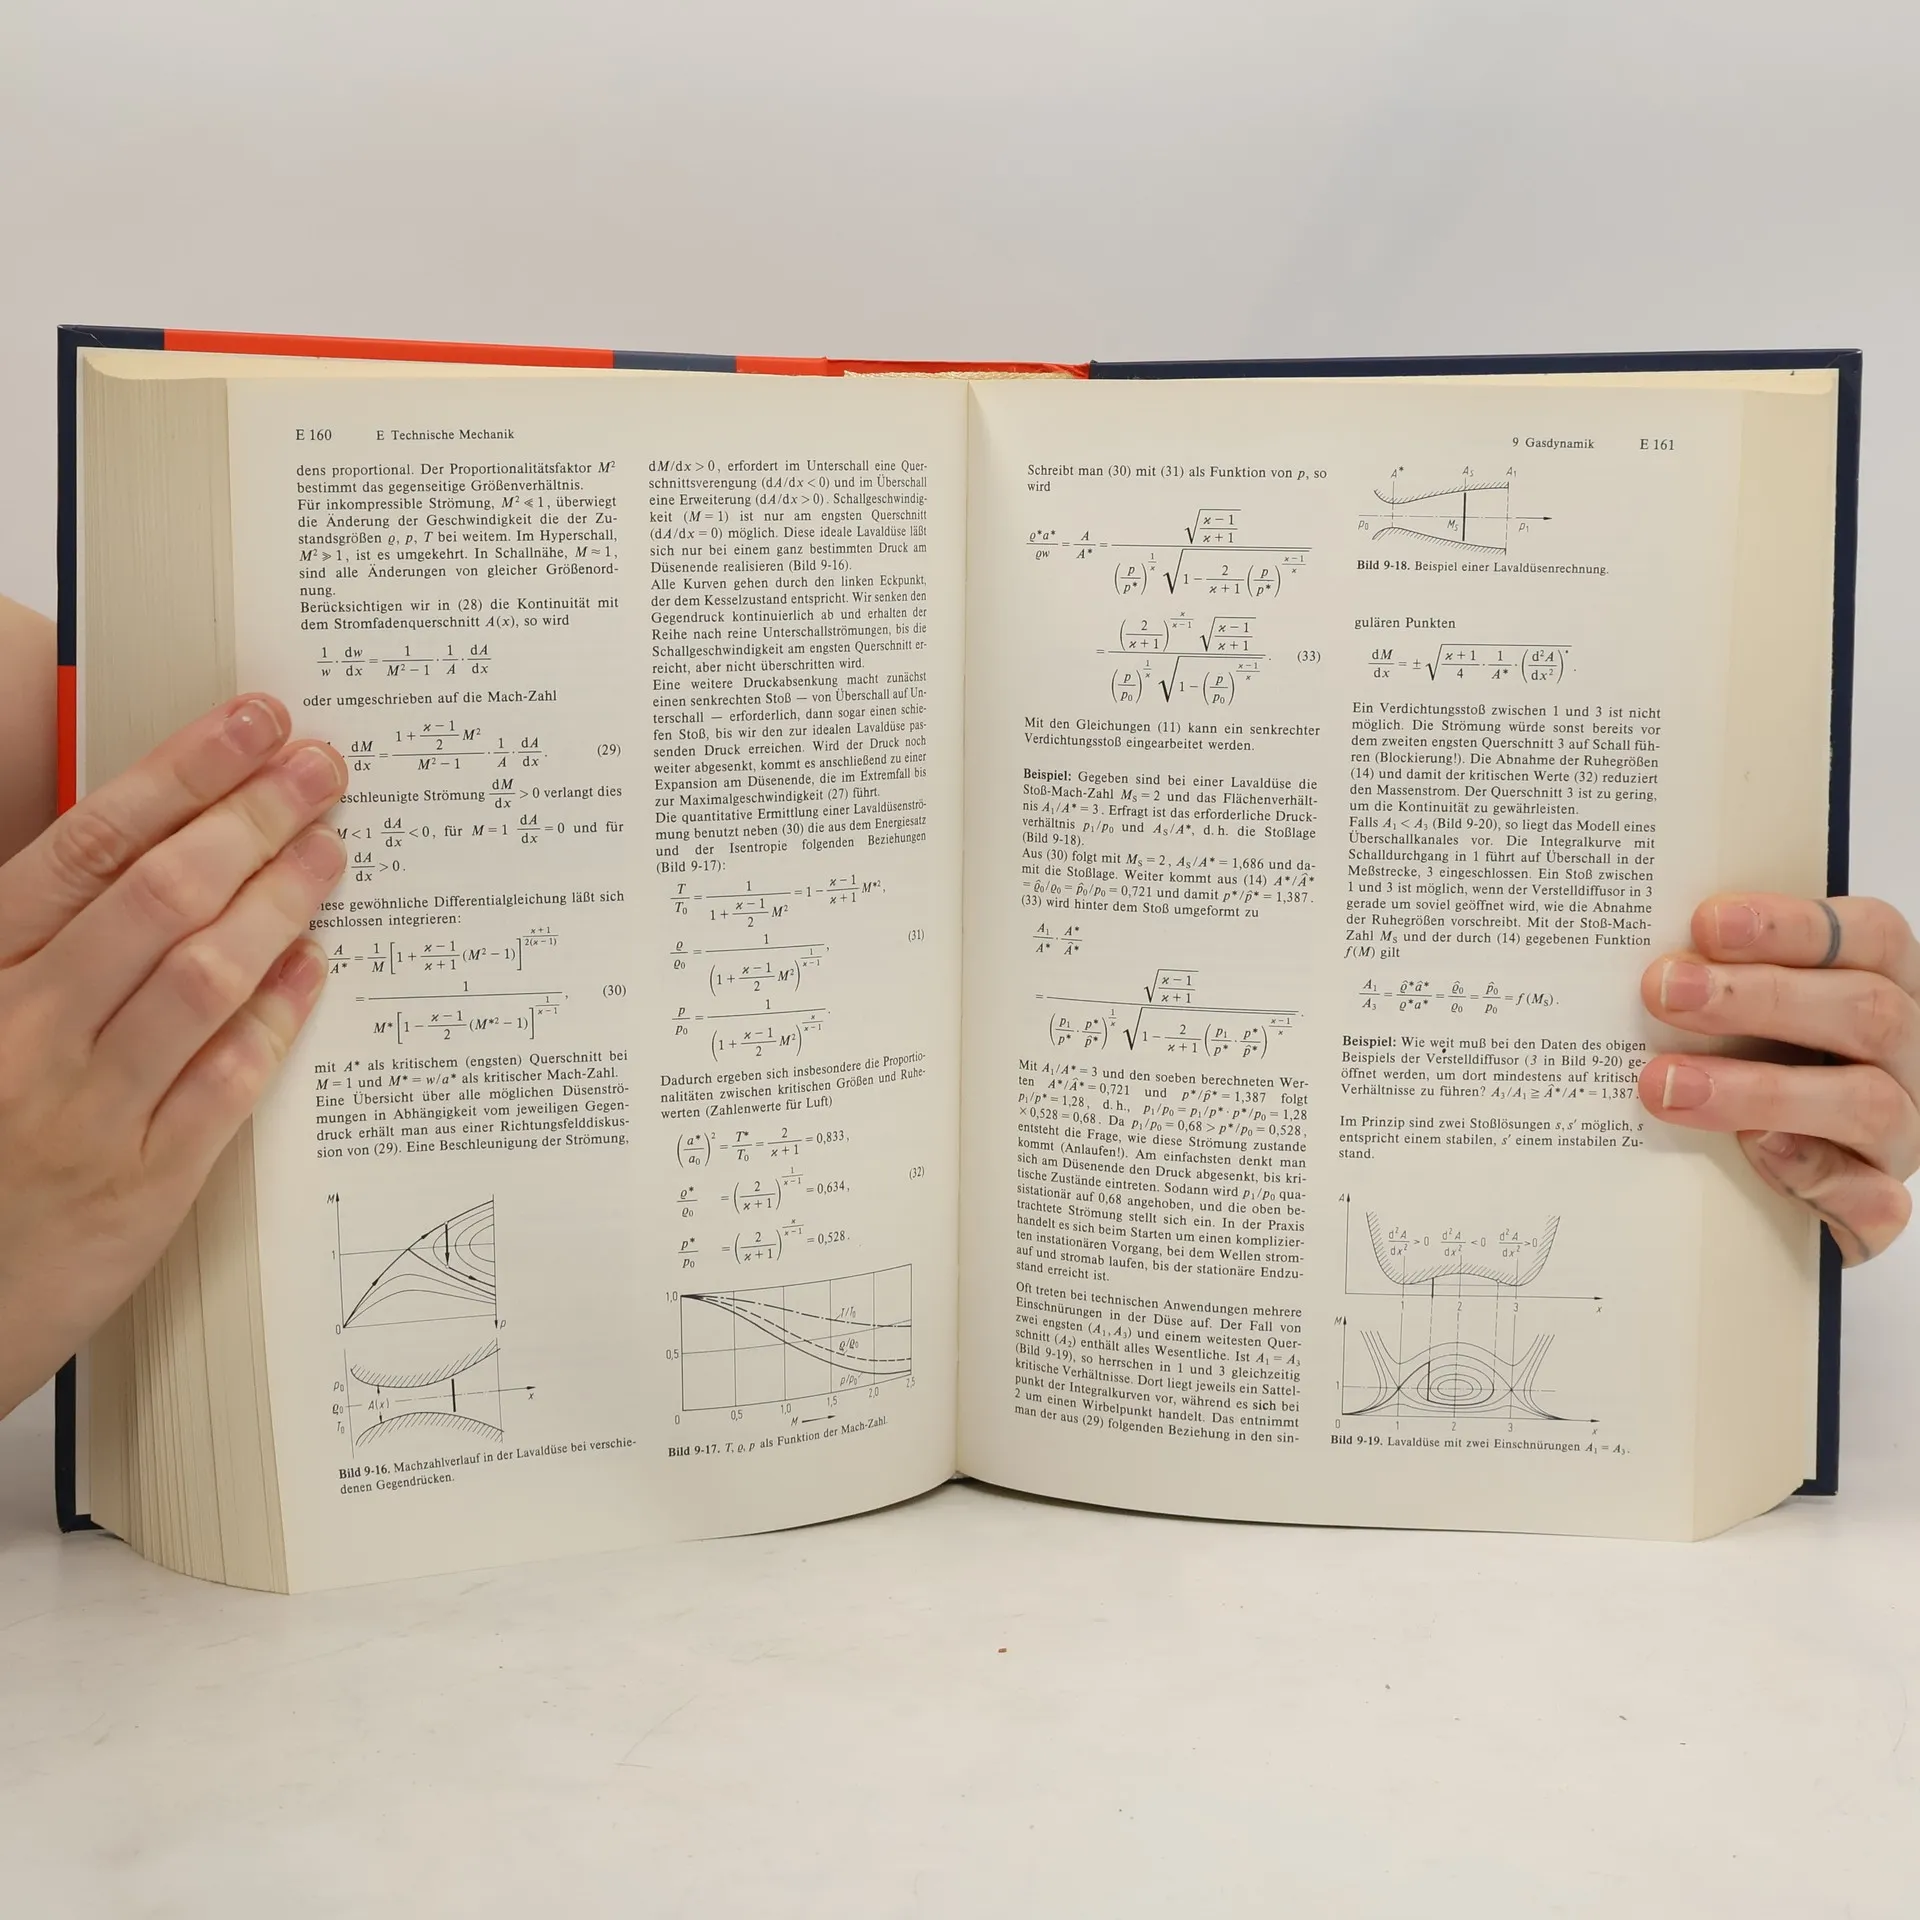 E 160 E Technische Mechanik
dens proportional. Der Proportionalitätsfaktor M²
bestimmt das gegenseitige Größenverhältnis.
Für inkompressible Strömung, M² ≪ 1, überwiegt
die Änderung der Geschwindigkeit die der Zu-
standsgrößen ϱ, p, T bei weitem. Im Hyperschall,
M² ≫ 1, ist es umgekehrt. In Schallnähe, M ≈ 1,
sind alle Änderungen von gleicher Größenord-
nung.
Berücksichtigen wir in (28) die Kontinuität mit
dem Stromfadenquerschnitt A(x), so wird
1/w · dw/dx = 1/(M² − 1) · 1/A · dA/dx
oder umgeschrieben auf die Mach-Zahl
· dM/dx = (1 + (ϰ − 1)/2 M²)/(M² − 1) · 1/A · dA/dx . (29)
eschleunigte Strömung dM/dx > 0 verlangt dies
M < 1 dA/dx < 0, für M = 1 dA/dx = 0 und für
dA/dx > 0.
iese gewöhnliche Differentialgleichung läßt sich
geschlossen integrieren:
A/A* = 1/M [1 + (ϰ − 1)/(ϰ + 1) (M² − 1)]^((ϰ + 1)/(2(ϰ − 1)))
= 1/(M* [1 − (ϰ − 1)/2 (M*² − 1)]^(1/(ϰ − 1))), (30)
mit A* als kritischem (engsten) Querschnitt bei
M = 1 und M* = w/a* als kritischer Mach-Zahl.
Eine Übersicht über alle möglichen Düsenströ-
mungen in Abhängigkeit vom jeweiligen Gegen-
druck erhält man aus einer Richtungsfelddiskus-
sion von (29). Eine Beschleunigung der Strömung,
M
1
0
p
p₀
ϱ₀
T₀
A(x)
x
Bild 9-16. Machzahlverlauf in der Lavaldüse bei verschie-
denen Gegendrücken.
dM/dx > 0, erfordert im Unterschall eine Quer-
schnittsverengung (dA/dx < 0) und im Überschall
eine Erweiterung (dA/dx > 0). Schallgeschwindig-
keit (M = 1) ist nur am engsten Querschnitt
(dA/dx = 0) möglich. Diese ideale Lavaldüse läßt
sich nur bei einem ganz bestimmten Druck am
Düsenende realisieren (Bild 9-16).
Alle Kurven gehen durch den linken Eckpunkt,
der dem Kesselzustand entspricht. Wir senken den
Gegendruck kontinuierlich ab und erhalten der
Reihe nach reine Unterschallströmungen, bis die
Schallgeschwindigkeit am engsten Querschnitt er-
reicht, aber nicht überschritten wird.
Eine weitere Druckabsenkung macht zunächst
einen senkrechten Stoß — von Überschall auf Un-
terschall — erforderlich, dann sogar einen schie-
fen Stoß, bis wir den zur idealen Lavaldüse pas-
senden Druck erreichen. Wird der Druck noch
weiter abgesenkt, kommt es anschließend zu einer
Expansion am Düsenende, die im Extremfall bis
zur Maximalgeschwindigkeit (27) führt.
Die quantitative Ermittlung einer Lavaldüsenströ-
mung benutzt neben (30) die aus dem Energiesatz
und der Isentropie folgenden Beziehungen
(Bild 9-17):
T/T₀ = 1/(1 + (ϰ − 1)/2 M²) = 1 − (ϰ − 1)/(ϰ + 1) M*²,
ϱ/ϱ₀ = 1/(1 + (ϰ − 1)/2 M²)^(1/(ϰ − 1)), (31)
p/p₀ = 1/(1 + (ϰ − 1)/2 M²)^(ϰ/(ϰ − 1)).
Dadurch ergeben sich insbesondere die Proportio-
nalitäten zwischen kritischen Größen und Ruhe-
werten (Zahlenwerte für Luft)
(a*/a₀)² = T*/T₀ = 2/(ϰ + 1) = 0,833,
ϱ*/ϱ₀ = (2/(ϰ + 1))^(1/(ϰ − 1)) = 0,634, (32)
p*/p₀ = (2/(ϰ + 1))^(ϰ/(ϰ − 1)) = 0,528.
1,0
0,5
0
T/T₀
ϱ/ϱ₀
p/p₀
0,5 1,0 1,5 2,0 2,5
M
Bild 9-17. T, ϱ, p als Funktion der Mach-Zahl.
9 Gasdynamik E 161
Schreibt man (30) mit (31) als Funktion von p, so
wird
ϱ*a*/ϱw = A/A* = √((ϰ − 1)/(ϰ + 1)) / ((p/p*)^(1/ϰ) √(1 − 2/(ϰ + 1) (p/p*)^((ϰ − 1)/ϰ)))
= (2/(ϰ + 1))^(ϰ/(ϰ − 1)) √((ϰ − 1)/(ϰ + 1)) / ((p/p₀)^(1/ϰ) √(1 − (p/p₀)^((ϰ − 1)/ϰ))). (33)
Mit den Gleichungen (11) kann ein senkrechter
Verdichtungsstoß eingearbeitet werden.
Beispiel: Gegeben sind bei einer Lavaldüse die
Stoß-Mach-Zahl M_S = 2 und das Flächenverhält-
nis A₁/A* = 3. Erfragt ist das erforderliche Druck-
verhältnis p₁/p₀ und A_S/A*, d. h. die Stoßlage
(Bild 9-18).
Aus (30) folgt mit M_S = 2, A_S/A* = 1,686 und da-
mit die Stoßlage. Weiter kommt aus (14) A*/Â*
= ϱ̂₀/ϱ₀ = p̂₀/p₀ = 0,721 und damit p*/p̂* = 1,387.
(33) wird hinter dem Stoß umgeformt zu
A₁/A* · A*/Â*
= √((ϰ − 1)/(ϰ + 1)) / ((p₁/p* · p*/p̂*)^(1/ϰ) √(1 − 2/(ϰ + 1) (p₁/p* · p*/p̂*)^((ϰ − 1)/ϰ))).
Mit A₁/A* = 3 und den soeben berechneten Wer-
ten A*/Â* = 0,721 und p*/p̂* = 1,387 folgt
p₁/p* = 1,28, d. h., p₁/p₀ = p₁/p* · p*/p₀ = 1,28
× 0,528 = 0,68. Da p₁/p₀ = 0,68 > p*/p₀ = 0,528,
entsteht die Frage, wie diese Strömung zustande
kommt (Anlaufen!). Am einfachsten denkt man
sich am Düsenende den Druck abgesenkt, bis kri-
tische Zustände eintreten. Sodann wird p₁/p₀ qua-
sistationär auf 0,68 angehoben, und die oben be-
trachtete Strömung stellt sich ein. In der Praxis
handelt es sich beim Starten um einen komplizier-
ten instationären Vorgang, bei dem Wellen strom-
auf und stromab laufen, bis der stationäre Endzu-
stand erreicht ist.
Oft treten bei technischen Anwendungen mehrere
Einschnürungen in der Düse auf. Der Fall von
zwei engsten (A₁, A₃) und einem weitesten Quer-
schnitt (A₂) enthält alles Wesentliche. Ist A₁ = A₃
(Bild 9-19), so herrschen in 1 und 3 gleichzeitig
kritische Verhältnisse. Dort liegt jeweils ein Sattel-
punkt der Integralkurven vor, während es sich bei
2 um einen Wirbelpunkt handelt. Das entnimmt
man der aus (29) folgenden Beziehung in den sin-
A* A_S A₁
p₀ M_S p₁
Bild 9-18. Beispiel einer Lavaldüsenrechnung.
gulären Punkten
dM/dx = ± √((ϰ + 1)/4 · 1/A* · (d²A/dx²)*).
Ein Verdichtungsstoß zwischen 1 und 3 ist nicht
möglich. Die Strömung würde sonst bereits vor
dem zweiten engsten Querschnitt 3 auf Schall füh-
ren (Blockierung!). Die Abnahme der Ruhegrößen
(14) und damit der kritischen Werte (32) reduziert
den Massenstrom. Der Querschnitt 3 ist zu gering,
um die Kontinuität zu gewährleisten.
Falls A₁ < A₃ (Bild 9-20), so liegt das Modell eines
Überschallkanales vor. Die Integralkurve mit
Schalldurchgang in 1 führt auf Überschall in der
Meßstrecke, 3 eingeschlossen. Ein Stoß zwischen
1 und 3 ist möglich, wenn der Verstelldiffusor in 3
gerade um soviel geöffnet wird, wie die Abnahme
der Ruhegrößen vorschreibt. Mit der Stoß-Mach-
Zahl M_S und der durch (14) gegebenen Funktion
f(M) gilt
A₁/A₃ = ϱ̂*â*/ϱ*a* = ϱ̂₀/ϱ₀ = p̂₀/p₀ = f(M_S).
Beispiel: Wie weit muß bei den Daten des obigen
Beispiels der Verstelldiffusor (3 in Bild 9-20) ge-
öffnet werden, um dort mindestens auf kritisch
Verhältnisse zu führen? A₃/A₁ ≧ Â*/A* = 1,387.
Im Prinzip sind zwei Stoßlösungen s, s′ möglich, s
entspricht einem stabilen, s′ einem instabilen Zu-
stand.
A
d²A/dx² > 0 d²A/dx² < 0 d²A/dx² > 0
1 2 3 x
M
1
0
1 2 3 x
Bild 9-19. Lavaldüse mit zwei Einschnürungen A₁ = A₃.